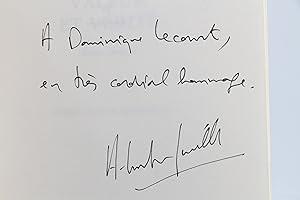 A Dominique Lecourt,
en très cordial hommage.